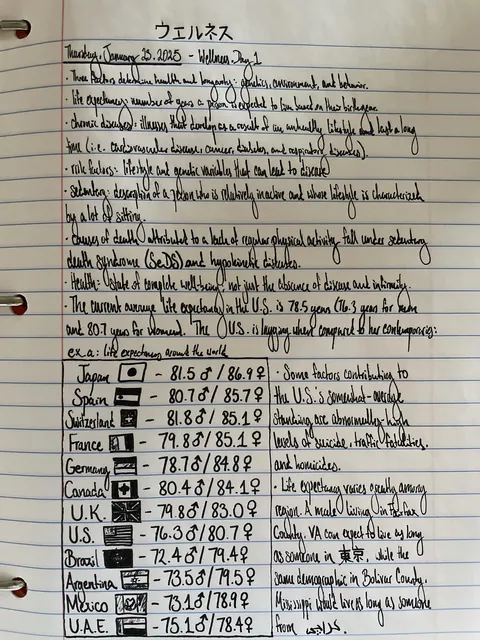 ウェルネス
Thursday, January 23, 2025 - Wellness, Day 1
· Three factors determine health and longevity: genetics, environment, and behavior.
· life expectancy: number of years a person is expected to live based on their birth year.
· chronic diseases: illnesses that develop as a result of an unhealthy lifestyle and last a long
time (i.e. cardiovascular disease, cancer, diabetes, and respiratory diseases).
· risk factors: lifestyle and genetic variables that can lead to disease
· sedentary: description of a person who is relatively inactive and whose lifestyle is characterized
by a lot of sitting.
· causes of death attributed to a lack of regular physical activity fall under sedentary
death syndrome (SeDS) and hypokinetic diseases.
· Health: state of complete well-being; not just the absence of disease and infirmity.
· The current average life expectancy in the U.S. is 78.5 years (76.3 years for men
and 80.7 years for women). The U.S. is lagging when compared to her contemporaries:
ex. a: life expectancy around the world
Japan - 81.5♂/86.9♀
Spain - 80.7♂/85.7♀
Switzerland - 81.8♂/85.1♀
France - 79.8♂/85.1♀
Germany - 78.7♂/84.8♀
Canada - 80.4♂/84.1♀
U.K. - 79.8♂/83.0♀
U.S. - 76.3♂/80.7♀
Brasil - 72.4♂/79.4♀
Argentina - 73.5♂/79.5♀
México - 73.1♂/78.9♀
U.A.E. - 75.1♂/78.4♀
· Some factors contributing to
the U.S.'s somewhat-average
standing are abnormally high
levels of suicide, traffic fatalities,
and homicides.
· Life expectancy varies greatly among
region. A male living in Fairfax
County, VA can expect to live as long
as someone in 東京, while the
same demographic in Bolivar County,
Mississippi would live as long as someone
from